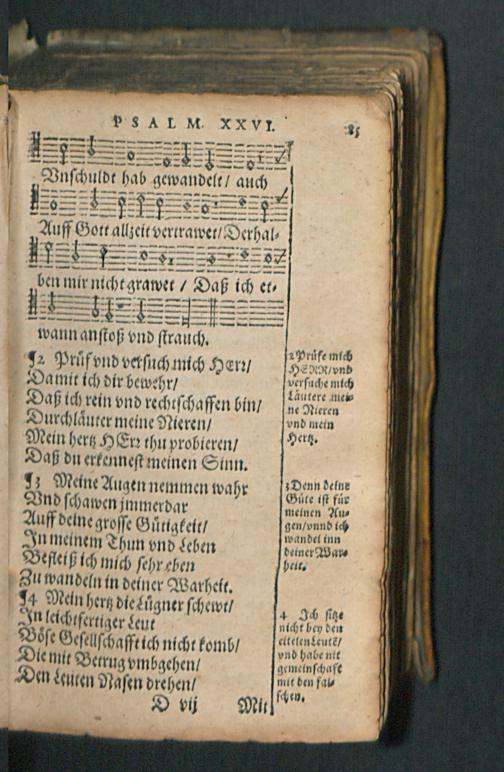 PSALM. XXVI. 85
Vnschuldt hab gewandelt/ auch
Auff Gott allzeit vertrawet/ Derhal-
ben mir nicht grawet / Daß ich et-
wann anstoß vnd strauch.
¶2 Prüf vnd versuch mich HErr/
Damit ich dir bewehr/
Daß ich rein vnd rechtschaffen bin/
Durchläuter meine Nieren/
Mein hertz HErr thu probieren/
Daß du erkennest meinen Sinn.
¶3 Meine Augen nemmen wahr
Vnd schawen jmmerdar
Auff deine grosse Gütigkeit/
In meinem Thun vnd Leben
Befleiß ich mich sehr eben
Zu wandeln in deiner Warheit.
¶4 Mein hertz die Lügner schewt/
In leichtfertiger Leut
Böse Gesellschafft ich nicht komb/
Die mit Betrug vmbgehen/
Den Leuten Nasen drehen/
D vij Mit
2 Prüfe mich
HERR/vnd
versuche mich
Läutere mei-
ne Nieren
vnd mein
Hertz.
3 Denn deine
Güte ist für
meinen Au-
gen/vnnd ich
wandel inn
deiner War-
heit.
4 Ich sitze
nicht bey den
eitelen Leutē/
vnd habe nit
gemeinschaft
mit den fal-
schen.